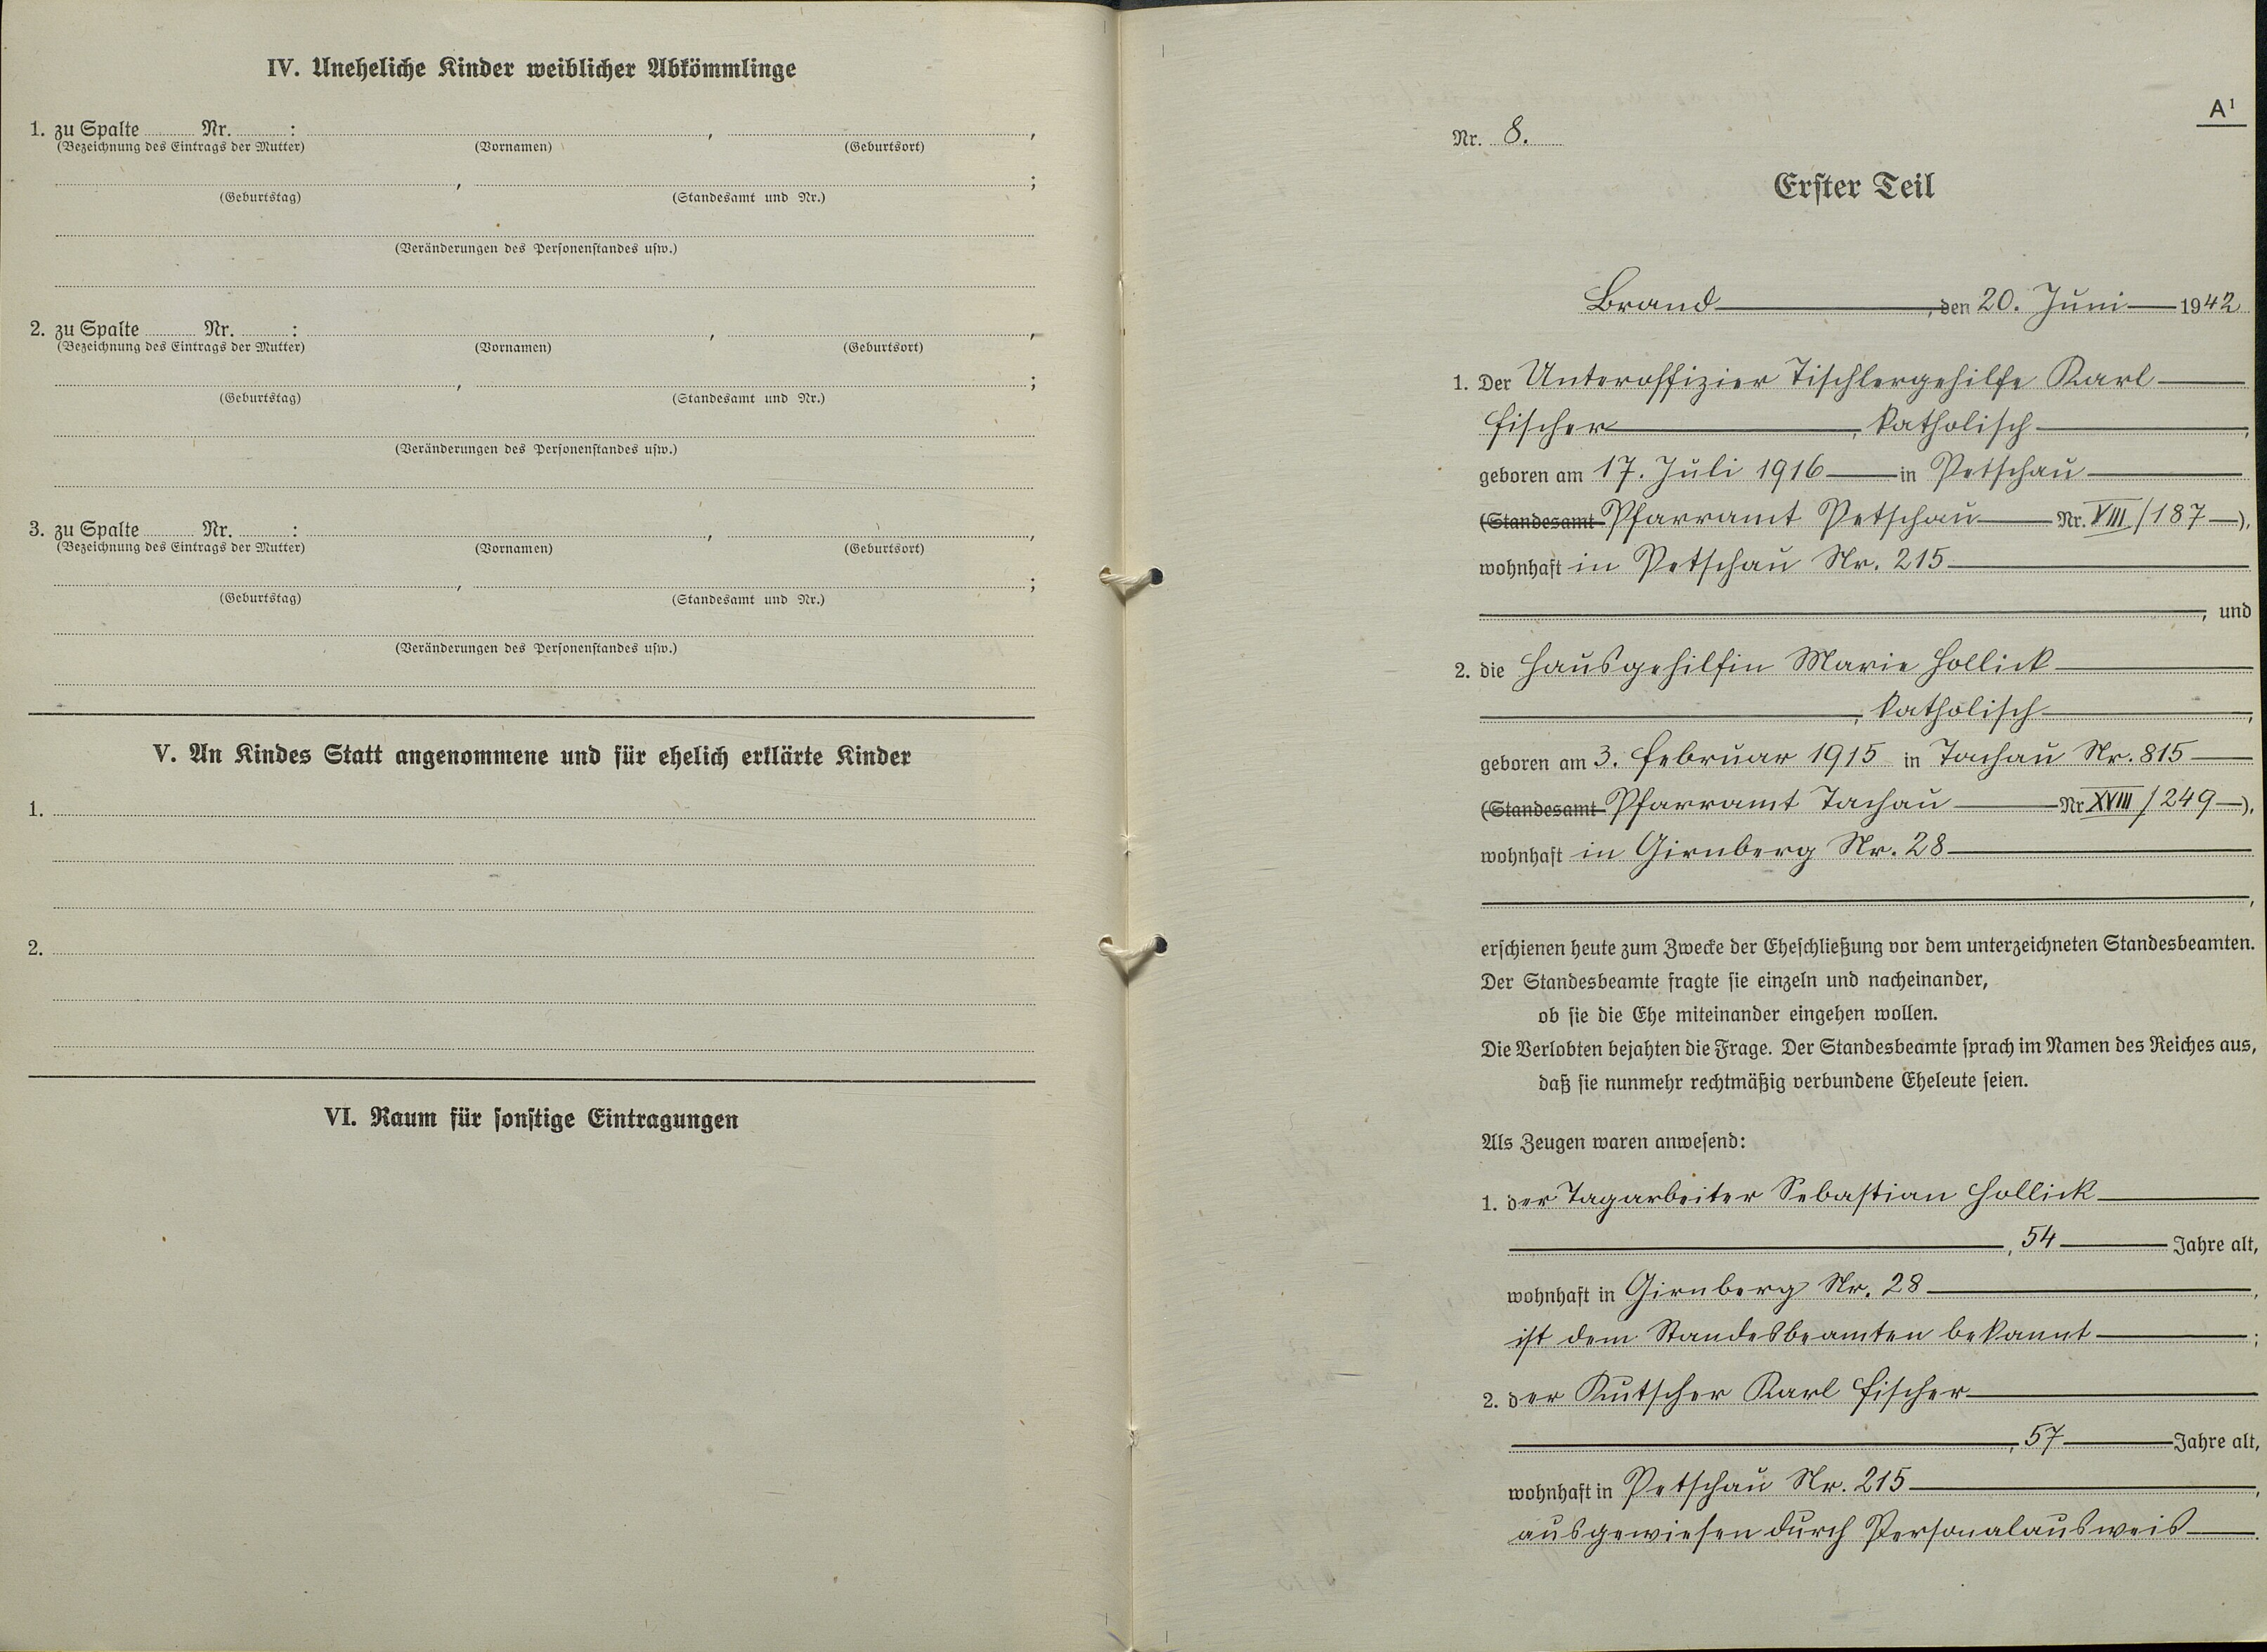 IV. Uneheliche Kinder weiblicher Abkömmlinge
1. zu Spalte Nr. : , ,
(Bezeichnung des Eintrags der Mutter) (Vornamen) (Geburtsort)
, ;
(Geburtstag) (Standesamt und Nr.)
(Veränderungen des Personenstandes usw.)
2. zu Spalte Nr. : , ,
(Bezeichnung des Eintrags der Mutter) (Vornamen) (Geburtsort)
, ;
(Geburtstag) (Standesamt und Nr.)
(Veränderungen des Personenstandes usw.)
3. zu Spalte Nr. : , ,
(Bezeichnung des Eintrags der Mutter) (Vornamen) (Geburtsort)
, ;
(Geburtstag) (Standesamt und Nr.)
(Veränderungen des Personenstandes usw.)
V. An Kindes Statt angenommene und für ehelich erklärte Kinder
1.
2.
VI. Raum für sonstige Eintragungen
A¹
Nr. 8.
Erster Teil
Brand, den 20. Juni 1942
1. Der Unteroffizier Tischlergehilfe Karl
Fischer, katholisch,
geboren am 17. Juli 1916 in Petschau
(Standesamt Pfarramt Petschau Nr. VIII/187),
wohnhaft in Petschau Nr. 215
, und
2. die Hausgehilfin Marie Hollick
, katholisch,
geboren am 3. Februar 1915 in Tachau Nr. 815
(Standesamt Pfarramt Tachau Nr. XVIII/249),
wohnhaft in Girnberg Nr. 28
,
erschienen heute zum Zwecke der Eheschließung vor dem unterzeichneten Standesbeamten.
Der Standesbeamte fragte sie einzeln und nacheinander,
ob sie die Ehe miteinander eingehen wollen.
Die Verlobten bejahten die Frage. Der Standesbeamte sprach im Namen des Reiches aus,
daß sie nunmehr rechtmäßig verbundene Eheleute seien.
Als Zeugen waren anwesend:
1. der Tagarbeiter Sebastian Hollick
, 54 Jahre alt,
wohnhaft in Girnberg Nr. 28,
ist dem Standesbeamten bekannt;
2. der Kutscher Karl Fischer
, 57 Jahre alt,
wohnhaft in Petschau Nr. 215,
ausgewiesen durch Personalausweis.